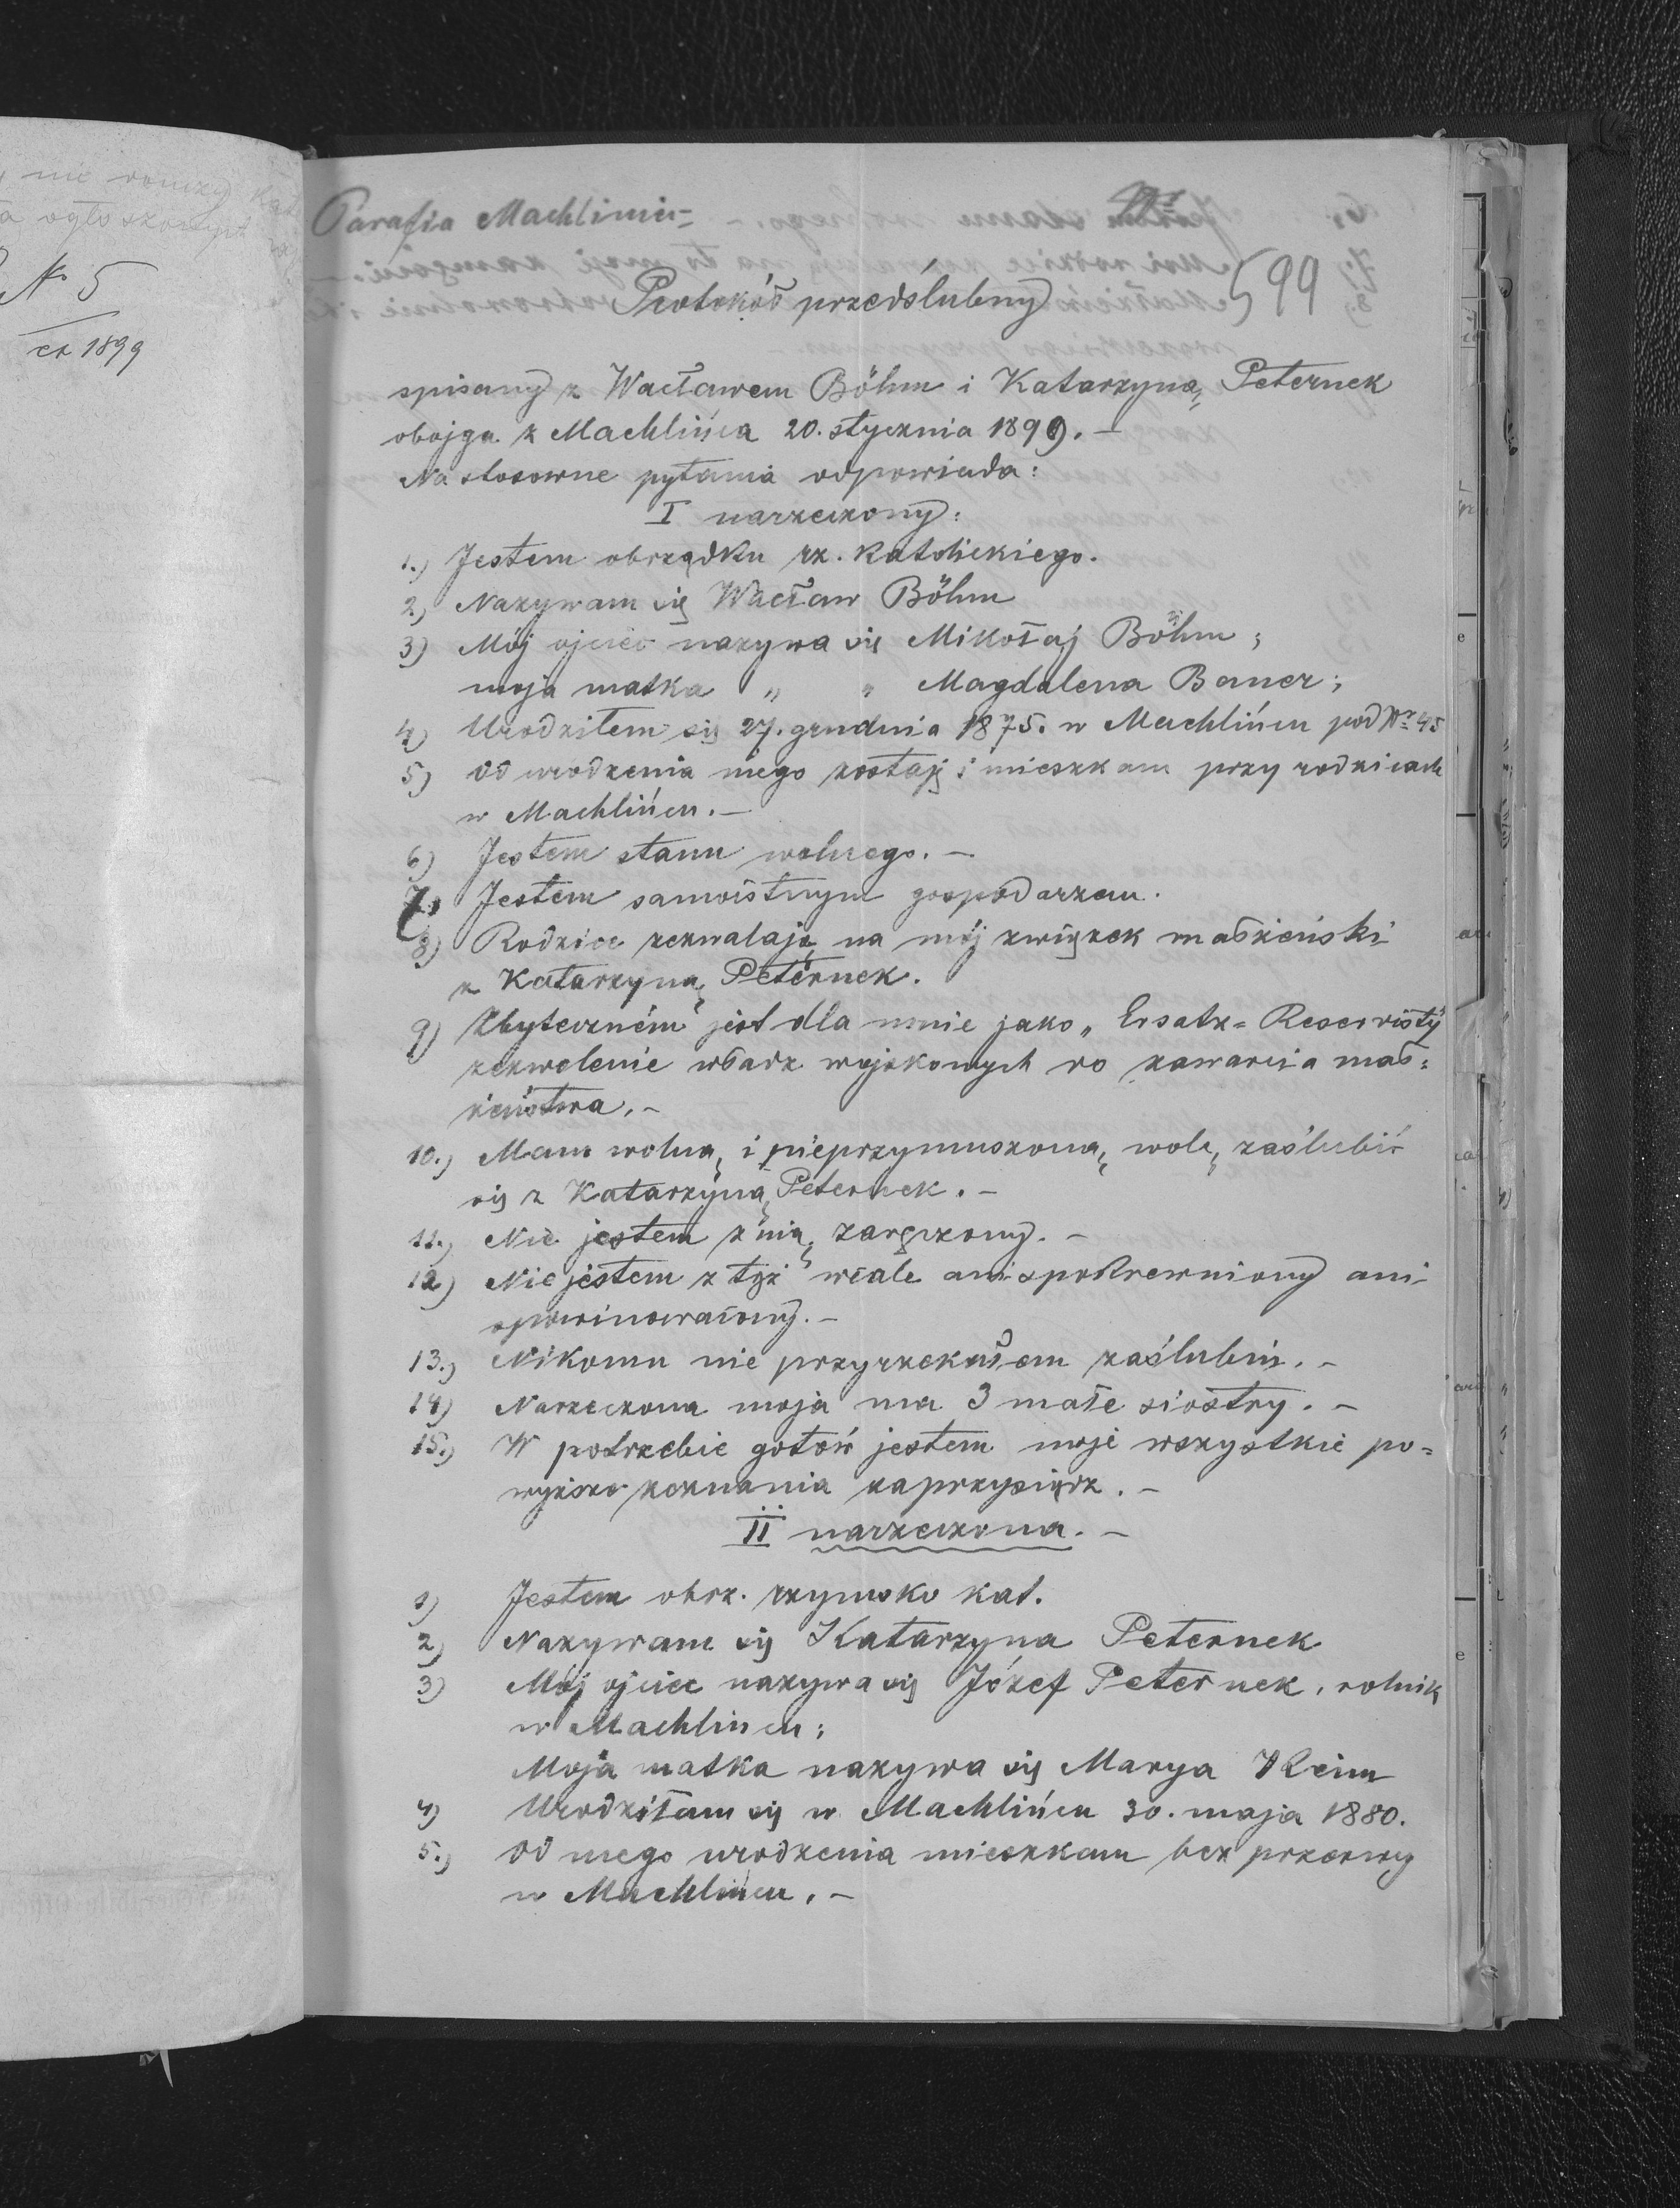 nie
ogłoszonych
№ 5
ex 1899
Parafia Machliniec
599
Protokół przedślubny
spisany z Wacławem Böhm i Katarzyną Peternek
obojga z Machlińca 20. stycznia 1899. –
Na stosowne pytania odpowiada:
I narzeczony:
1.) Jestem obrządku rz. katolickiego.
2.) Nazywam się Wacław Böhm
3) Mój ojciec nazywa się Mikołaj Böhm;
moja matka " " Magdalena Bauer;
4) Urodziłem się 27. grudnia 1875. w Machlińcu pod Nr 45
5) Od urodzenia mego zostaję i mieszkam przy rodzicach
w Machlińcu. –
6) Jestem stanu wolnego. –
7.) Jestem samoistnym gospodarzem.
8) Rodzice zezwalają na mój związek małżeński
z Katarzyną Peternek.
9) Zbyteczném jest dla mnie jako „Ersatz=Reservisty"
zezwolenie władz wojskowych do zawarcia mał=
żeństwa. –
10.) Mam wolną i nieprzymuszoną wolę zaślubić
się z Katarzyną Peternek. –
11.) Nie jestem z nią zaręczony. –
12) Nie jestem z tąż wcale ani spokrewniony ani
spowinowacony. –
13.) Nikomu nie przyrzekałem zaślubin. –
14) Narzeczona moja ma 3 małe siostry. –
15.) W potrzebie gotów jestem moje wszystkie po=
wyższe zeznania zaprzysiądz. –
II narzeczona. –
1) Jestem obrz. rzymsko kat.
2) Nazywam się Katarzyna Peternek
3) Mój ojciec nazywa się Józef Peternek, rolnik
w Machlińcu;
Moja matka nazywa się Marya Kleim
4) Urodziłam się w Machlińcu 30. maja 1880.
5.) Od mego urodzenia mieszkam bez przerwy
w Machlińcu. –